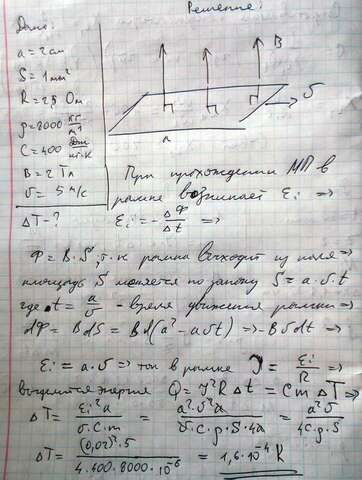 Решение:
Дано:
a = 2 см
S = 1 мм²
R = 28 Ом
ρ = 8000 кг/м³
C = 400 Дж/кг·К
B = 2 Тл
υ = 5 м/с
ΔT - ?
B
υ
a
При прохождении МП в
рамке возникает Ei ⇒
Ei = - ΔФ/Δt ⇒
Ф = B·S, т.к рамка выходит из поля ⇒
площадь S меняется по закону S = a·υ·t
где t = a/υ - время движения рамки ⇒
dФ = BdS = Bd(a² - aυt) ⇒ - Bυdt ⇒
Ei = a·υ ⇒ ток в рамке J = Ei/R ⇒
выделится энергия Q = J²RΔt = CmΔT ⇒
ΔT = Ei²a/υ·C·m = a²·υ²a/υ·C·ρ·S·4a = a²υ/4C·ρ·S
ΔT = (0,02)²·5/4·400·8000·10⁻⁶ = 1,6·10⁻⁴ K